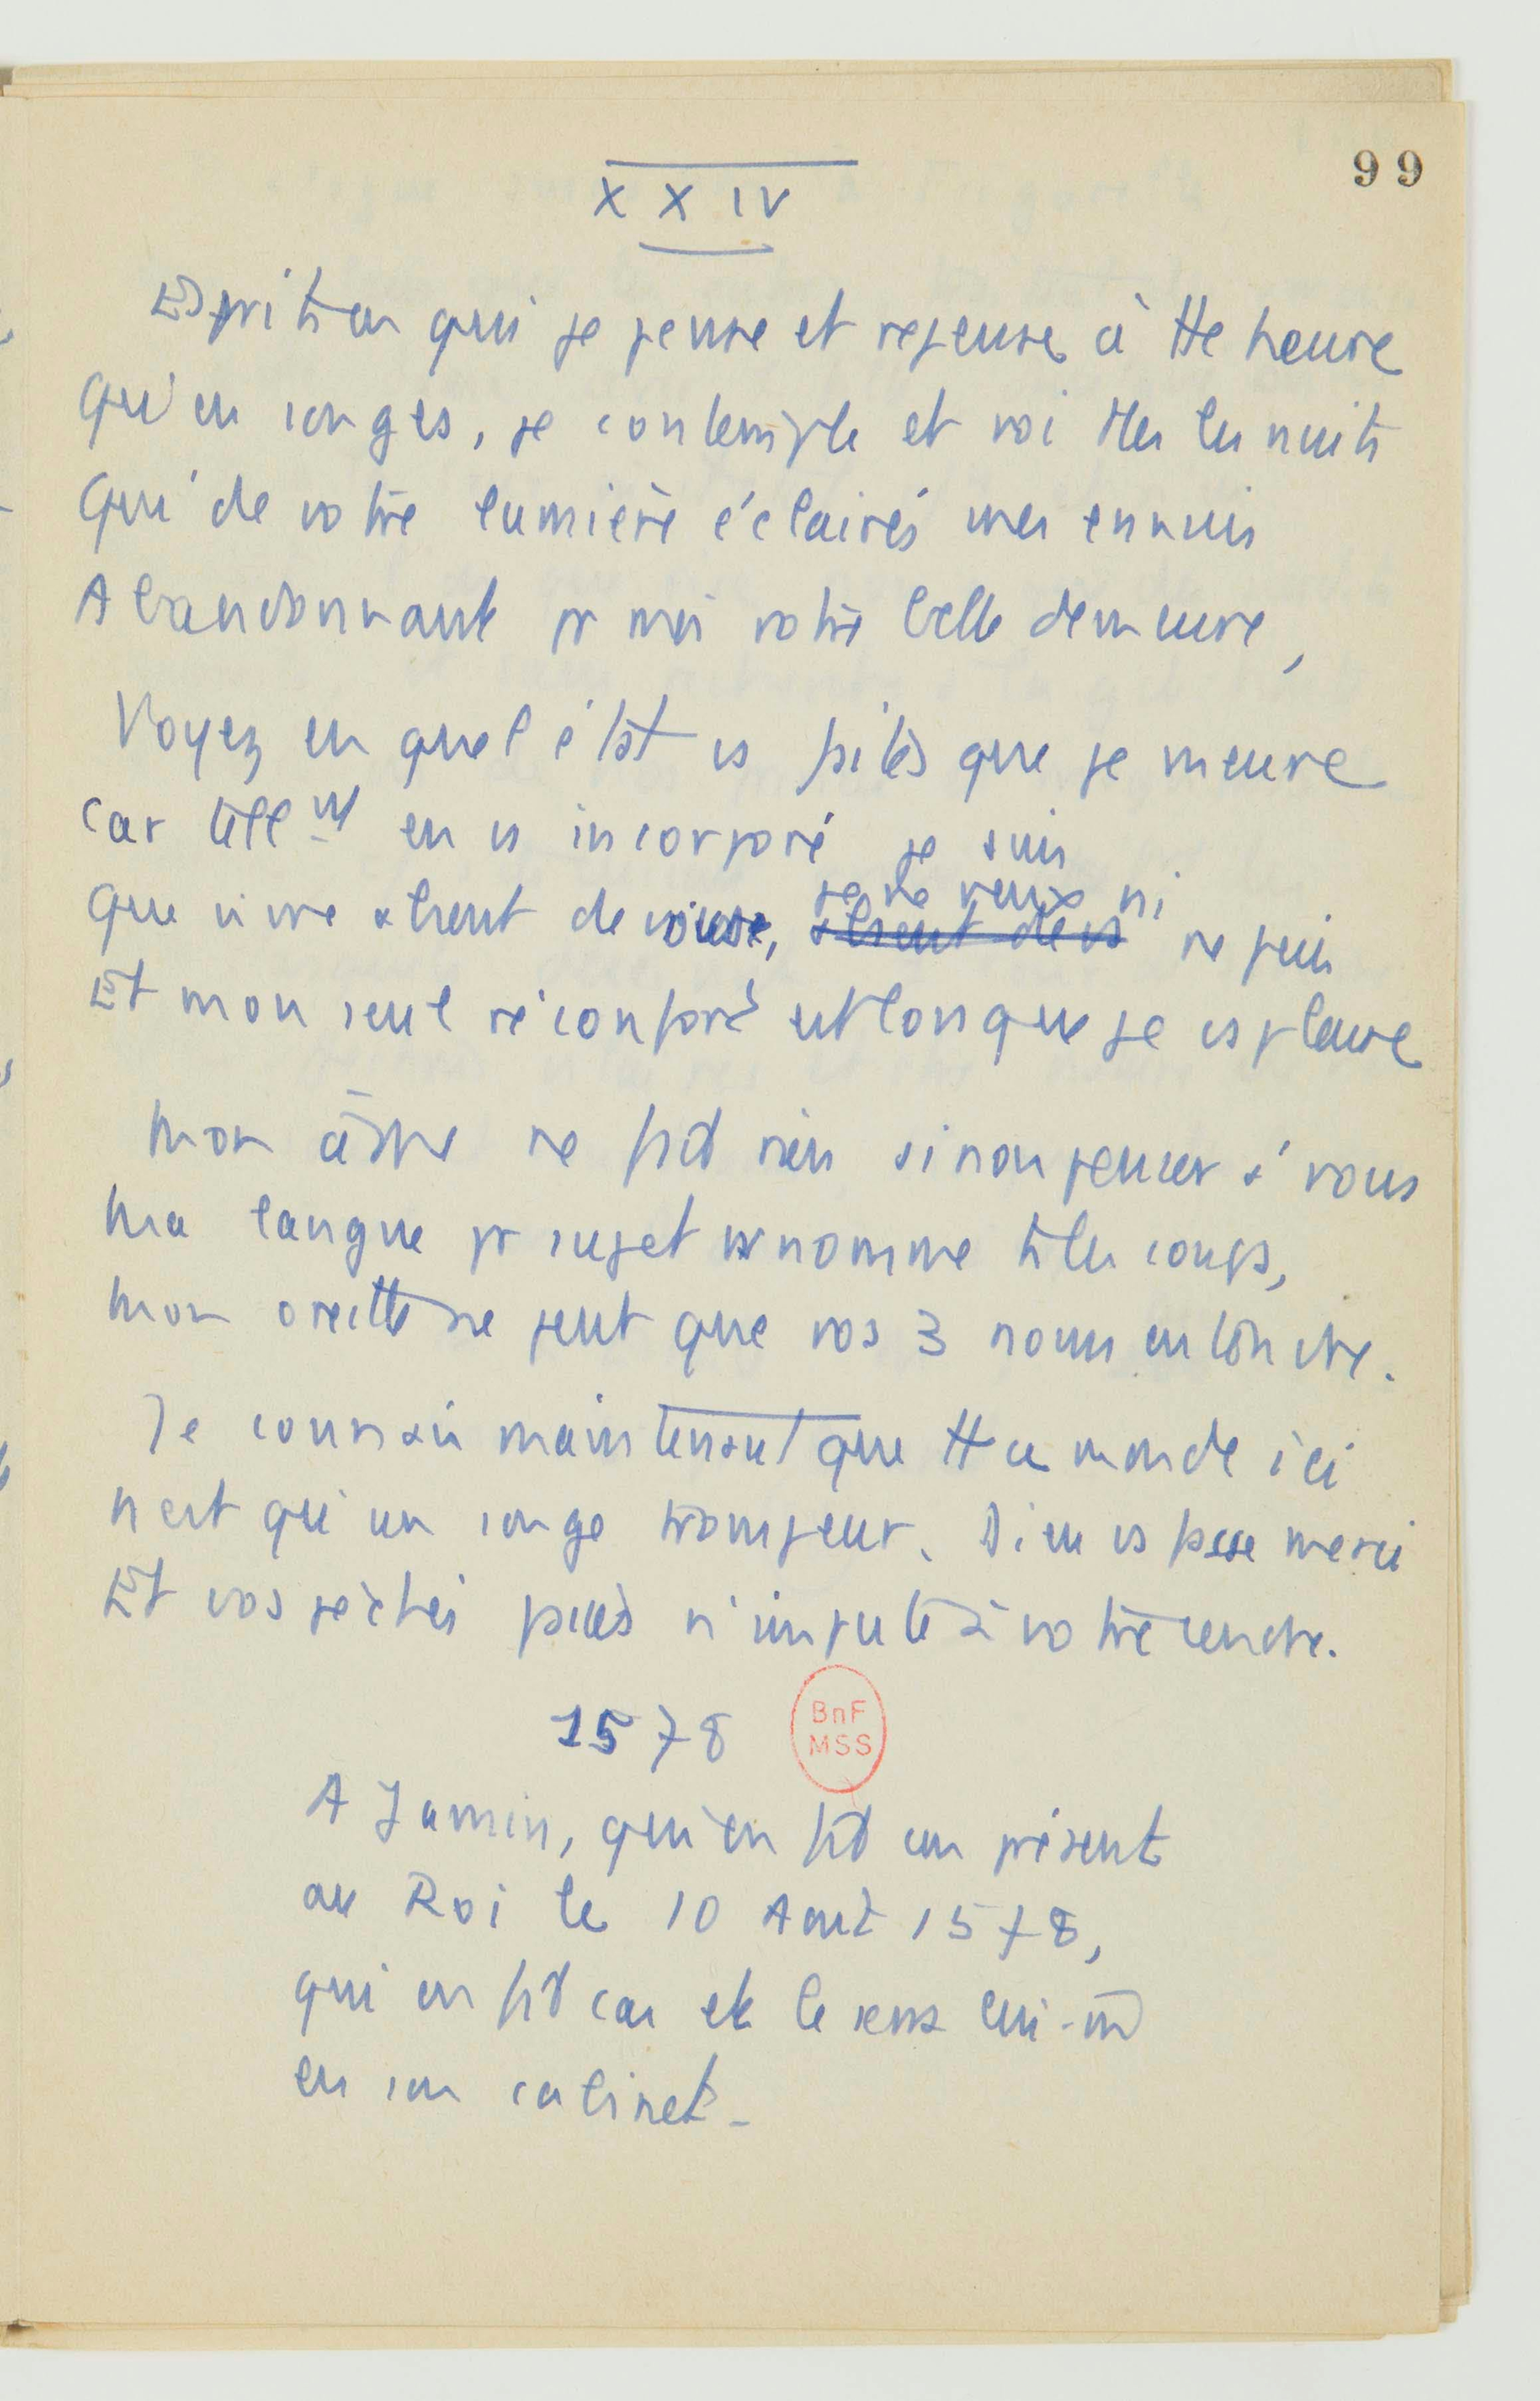 99
XXIV
Esprits en qui je pense et repense à tte heure
Qu'en songes, je contemple et voi ttes les nuits
Qui de votre lumière éclairés mes ennuis
Abandonnant pr moi votre belle demeure,
Voyez en quel état vs faites que je meure
Car tellnt en vs incorporé je suis
Que vivre absent de vous, absent de vs je ne veux ni ne puis
Et mon seul réconfort est lors que je vs pleure
Mon âme ne fait rien sinon penser à vous
Ma langue pr sujet vs nomme ts les coups,
Mon oreille ne peut que vos 3 noms entendre.
Je connais maintenant que tt ce monde ici
N'est qu'un songe trompeur. Dieu vs fasse merci
Et vos péchés passés n'impute à votre cendre.
1578
BnF
MSS
A Jamin, qui en fit un présent
au Roi le 10 Août 1578,
qui en fit cas et le serra lui-m̄
en son cabinet-